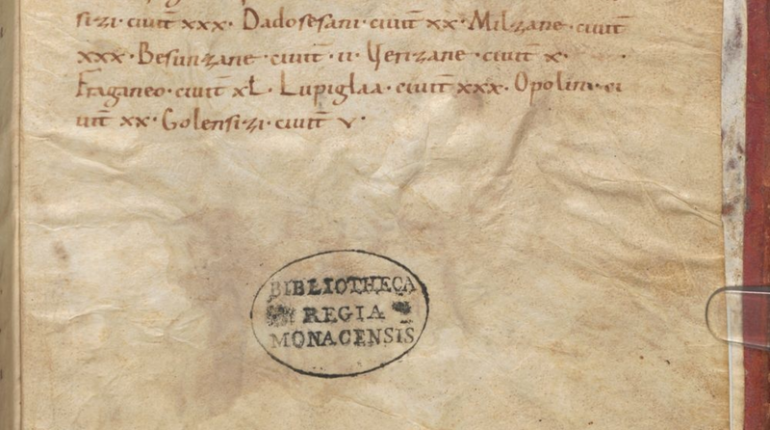 sizi civit̄ xxx· Dadosesani· civit̄ xx· Milzane· civit̄
xxx· Besunzane· civit̄· ii· Verizane· civit̄· x·
Fraganeo· civit̄· xl· Lupiglaa· civit̄ xxx· Opolini· ci
vit̄ xx· Golensizi· civit̄ v·
BIBLIOTHECA
REGIA
MONACENSIS